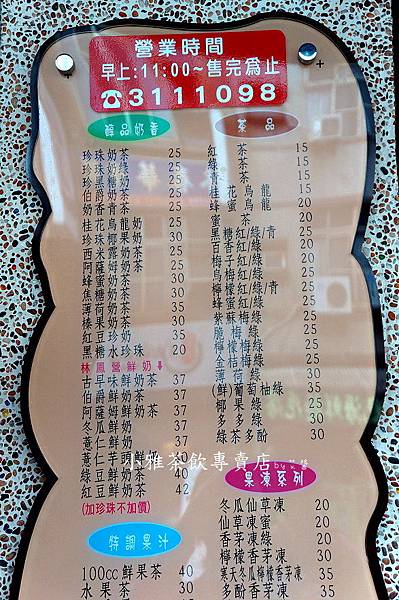 營業時間
早上:11:00~售完為止
☎3111098
醇品奶香
珍珠奶茶 25
珍珠奶綠 25
珍珠黑糖奶 25
伯爵奶茶 25
奶香 25
桂花烏龍奶 25
珍珠椰果奶 30
西米露奶茶 25
阿薩姆奶茶 25
蜂蜜奶茶 30
焦糖奶茶 30
薄荷奶茶 35
榛果奶茶 30
紅豆珍奶 35
黑糖水珍珠 20
林鳳營鮮奶⬇
古早味鮮奶茶 37
伯爵鮮奶茶 37
阿薩姆鮮奶茶 37
冬瓜鮮奶 37
薏仁鮮奶 37
薏仁芋頭鮮奶
綠豆鮮奶茶 40
紅豆鮮奶茶 42
(加珍珠不加價)
特調果汁
100cc鮮果茶 40
水果茶 30
茶品
紅茶 15
茶 15
茶 15
桂花烏龍
蜂蜜烏龍 20
茶 20
黑糖紅/綠/青
百香紅/綠
梅子紅/綠
烏梅紅/綠
檸檬紅/綠/青
蜂蜜紅/綠
紫蘇梅綠
脆梅綠
檸檬梅綠
金桔梅綠
薄荷綠 30
(鮮)葡萄柚綠 35
椰果綠 25
多多綠 30
綠茶多酚 30
果凍系列
冬瓜仙草凍 20
仙草凍蜜 20
香茅凍綠 20
檸檬香茅凍 30
寒天冬瓜檸檬香茅凍 35
多酚香茅凍 35
小雅茶飲專賣店